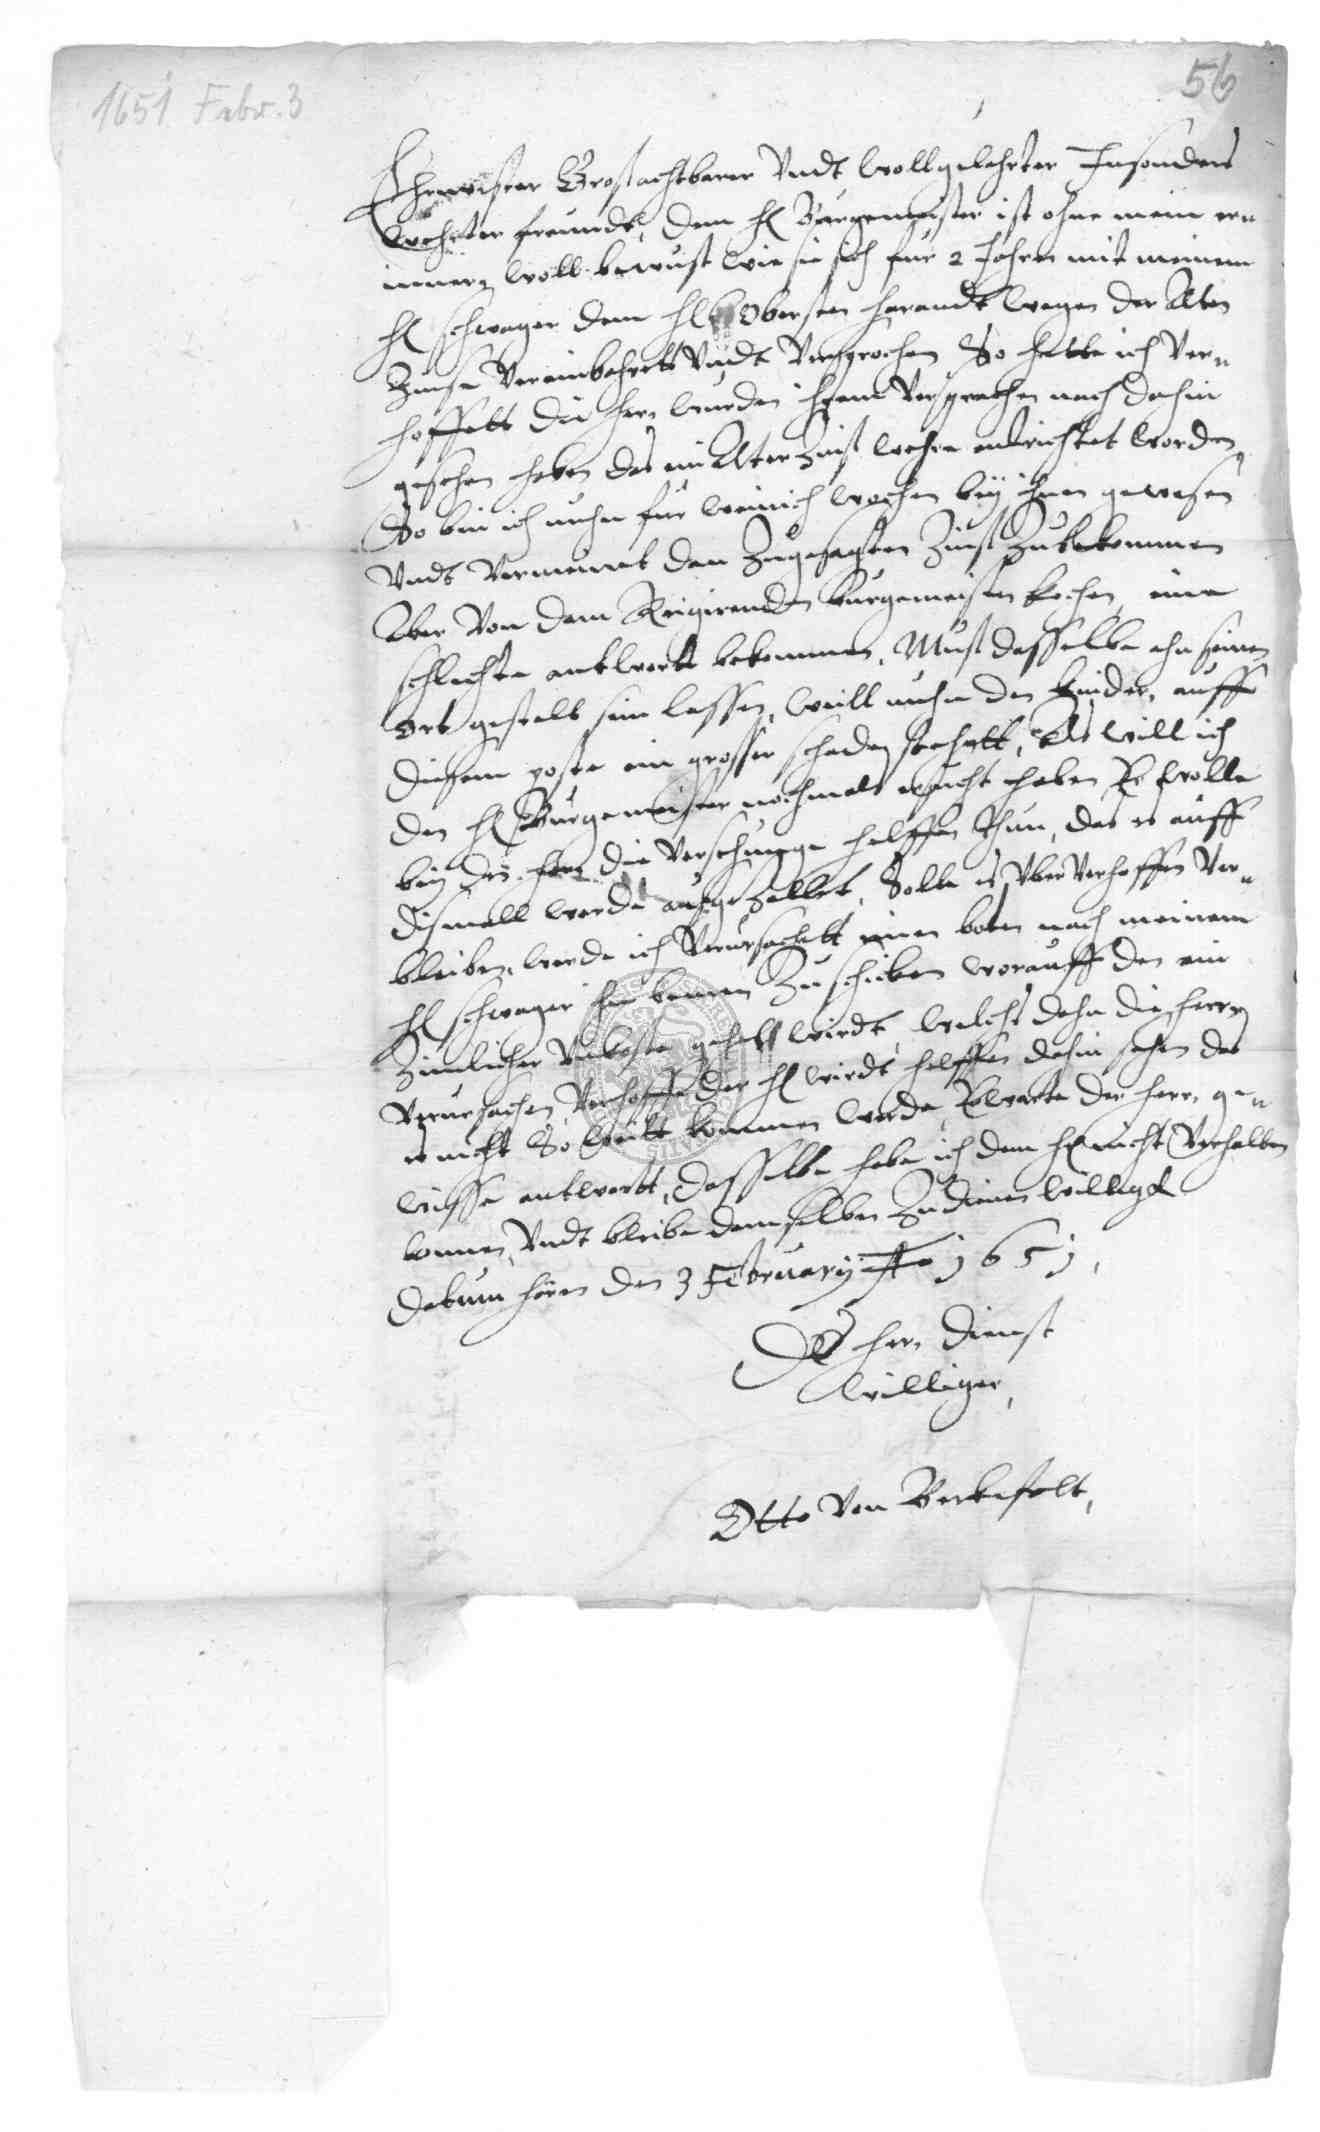 1651 Febr. 3
56
Ehrnvester Großachtbarer Undt wollgelahrter Insonders
wehrter freundt, dem H Burgemeister ist ohne mein er„
innern woll bewust wie sie sich fur 2 Jahren mit meinem
H schwager dem H Obersten wegen der Alten
Zinse Vereinbahrett Undt Versprochen So hatte ich Ver„
hoffett die hern wurden ihrem Versprechen nach dahin
gesehen haben das ein Alter Zinß wehre endtrichtet worden,
So bin ich nuhn fur weinich wochen bey ihnen gewesen
Undt Vermeinet den Zugesagten Zinß Zubekommen
Aber Von dem Regirenden Burgemeister Kochen eine
schlechte antwortt bekommen, Muß dasselbe ahn seinen
Ort gestelt sein lassen, weill nuhn den Kinder, auff
diesem poste ein grosser schaden stehett, Als will ich
den H Burgemeister nochmals ersucht haben Er wolle
bey den hern die Versehunge helffen thun, das es auff
dismall werde außgezallet, Solte es Uber Verhoffen Ver„
bleiben, werde ich Verursachett einen boten nach meinem
H schwager Zuschicken worauff den ein
Zimlicher Unkoste gehen wirdt, welchs dan die herrn
Verursachen, Verhoffe der H wirdt helffen dahin sehen das
es nicht So weitt kommen werde, Erwarte der herrn ge„
wisse antwortt, dasselbe habe ich dem H nicht Verhalten
konnen, Undt bleibe demselben Zudienen willigh
Datum den 3 February Ao 1651,
Des hern Dienst
williger,
Otto Von Berkefelt,